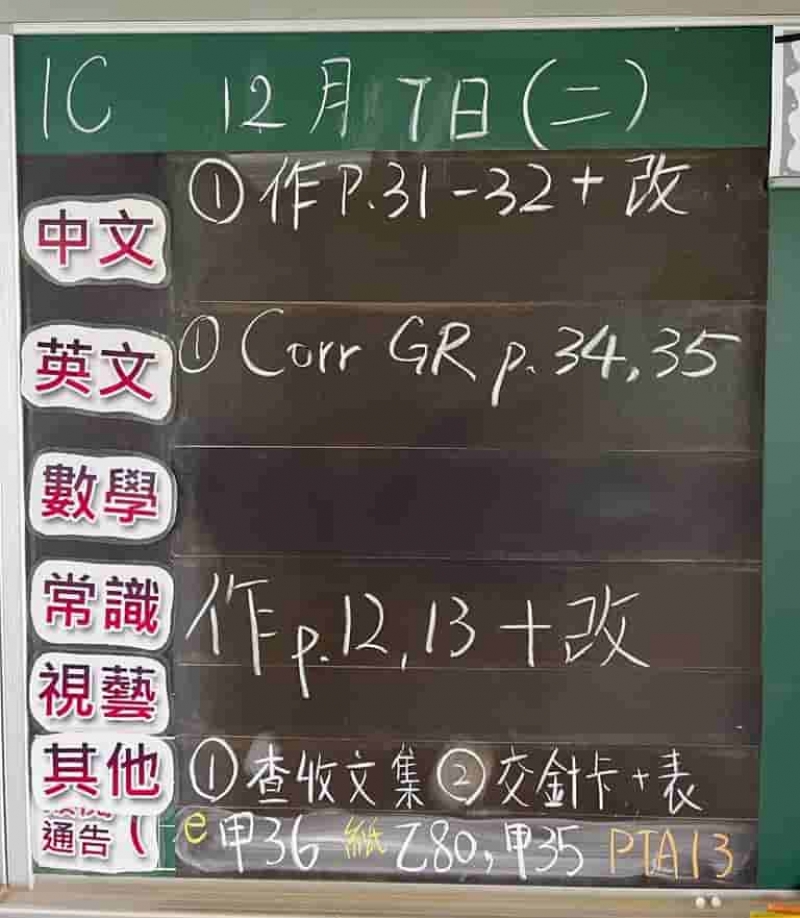 1C 12月7日(二)
中文 ①作P.31-32+改
英文 ①Corr GR p.34,35
數學
常識 作p.12,13+改
視藝
其他 ①查收文集②交針卡+表
通告 ( e甲36 紙乙80,甲35 PTA13